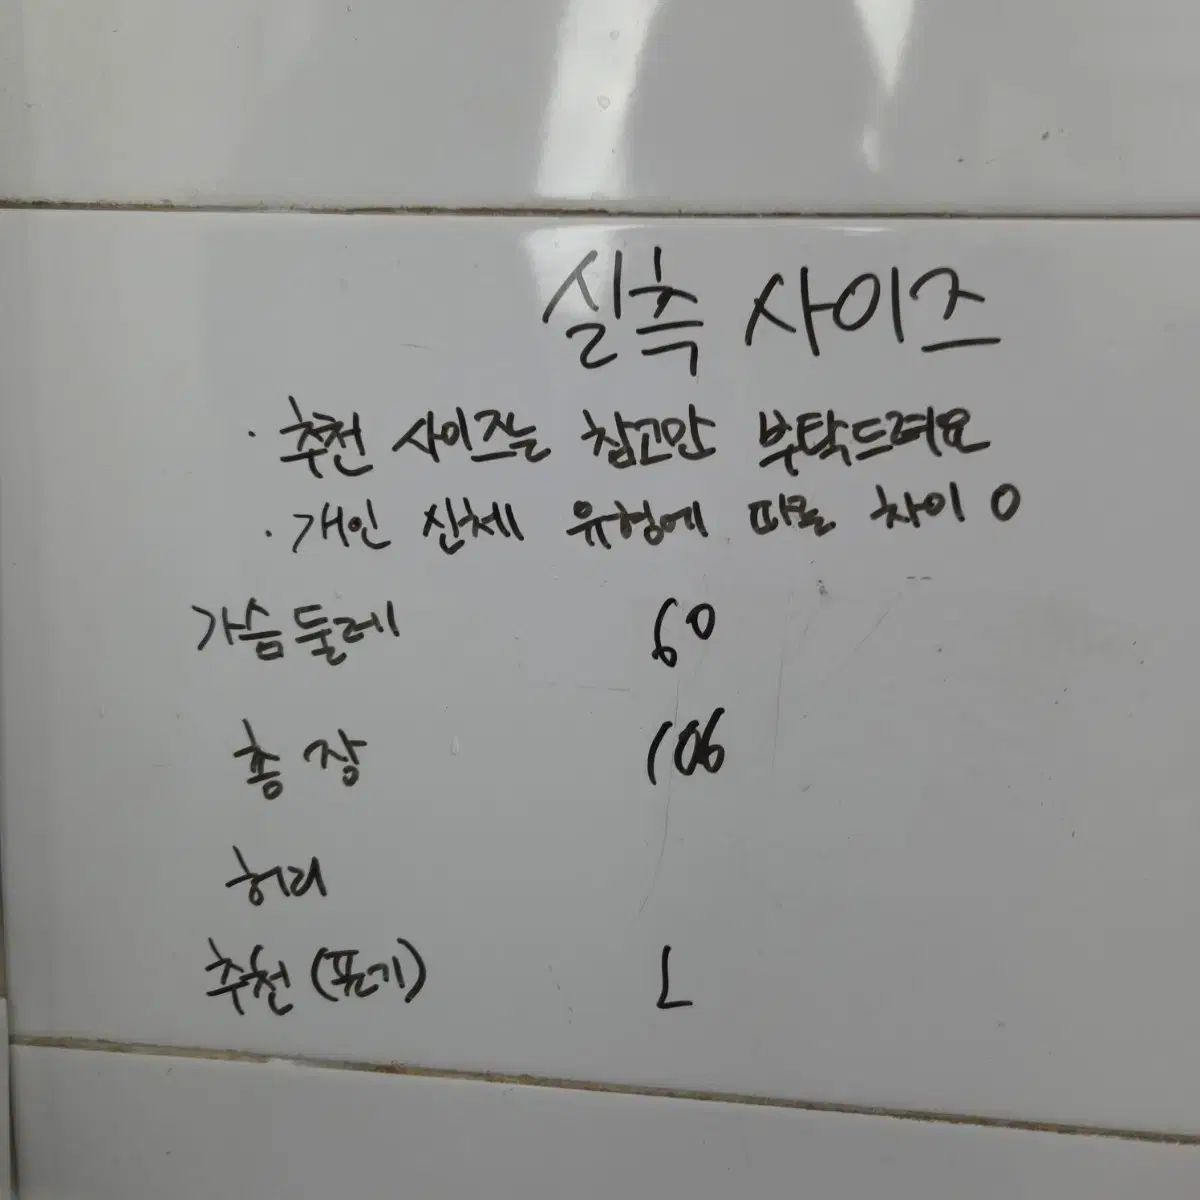 실측 사이즈
· 추천 사이즈는 참고만 부탁드려요
· 개인 신체 유형에 따를 차이 O
가슴둘레 60
총장 106
허리
추천 (표기) L